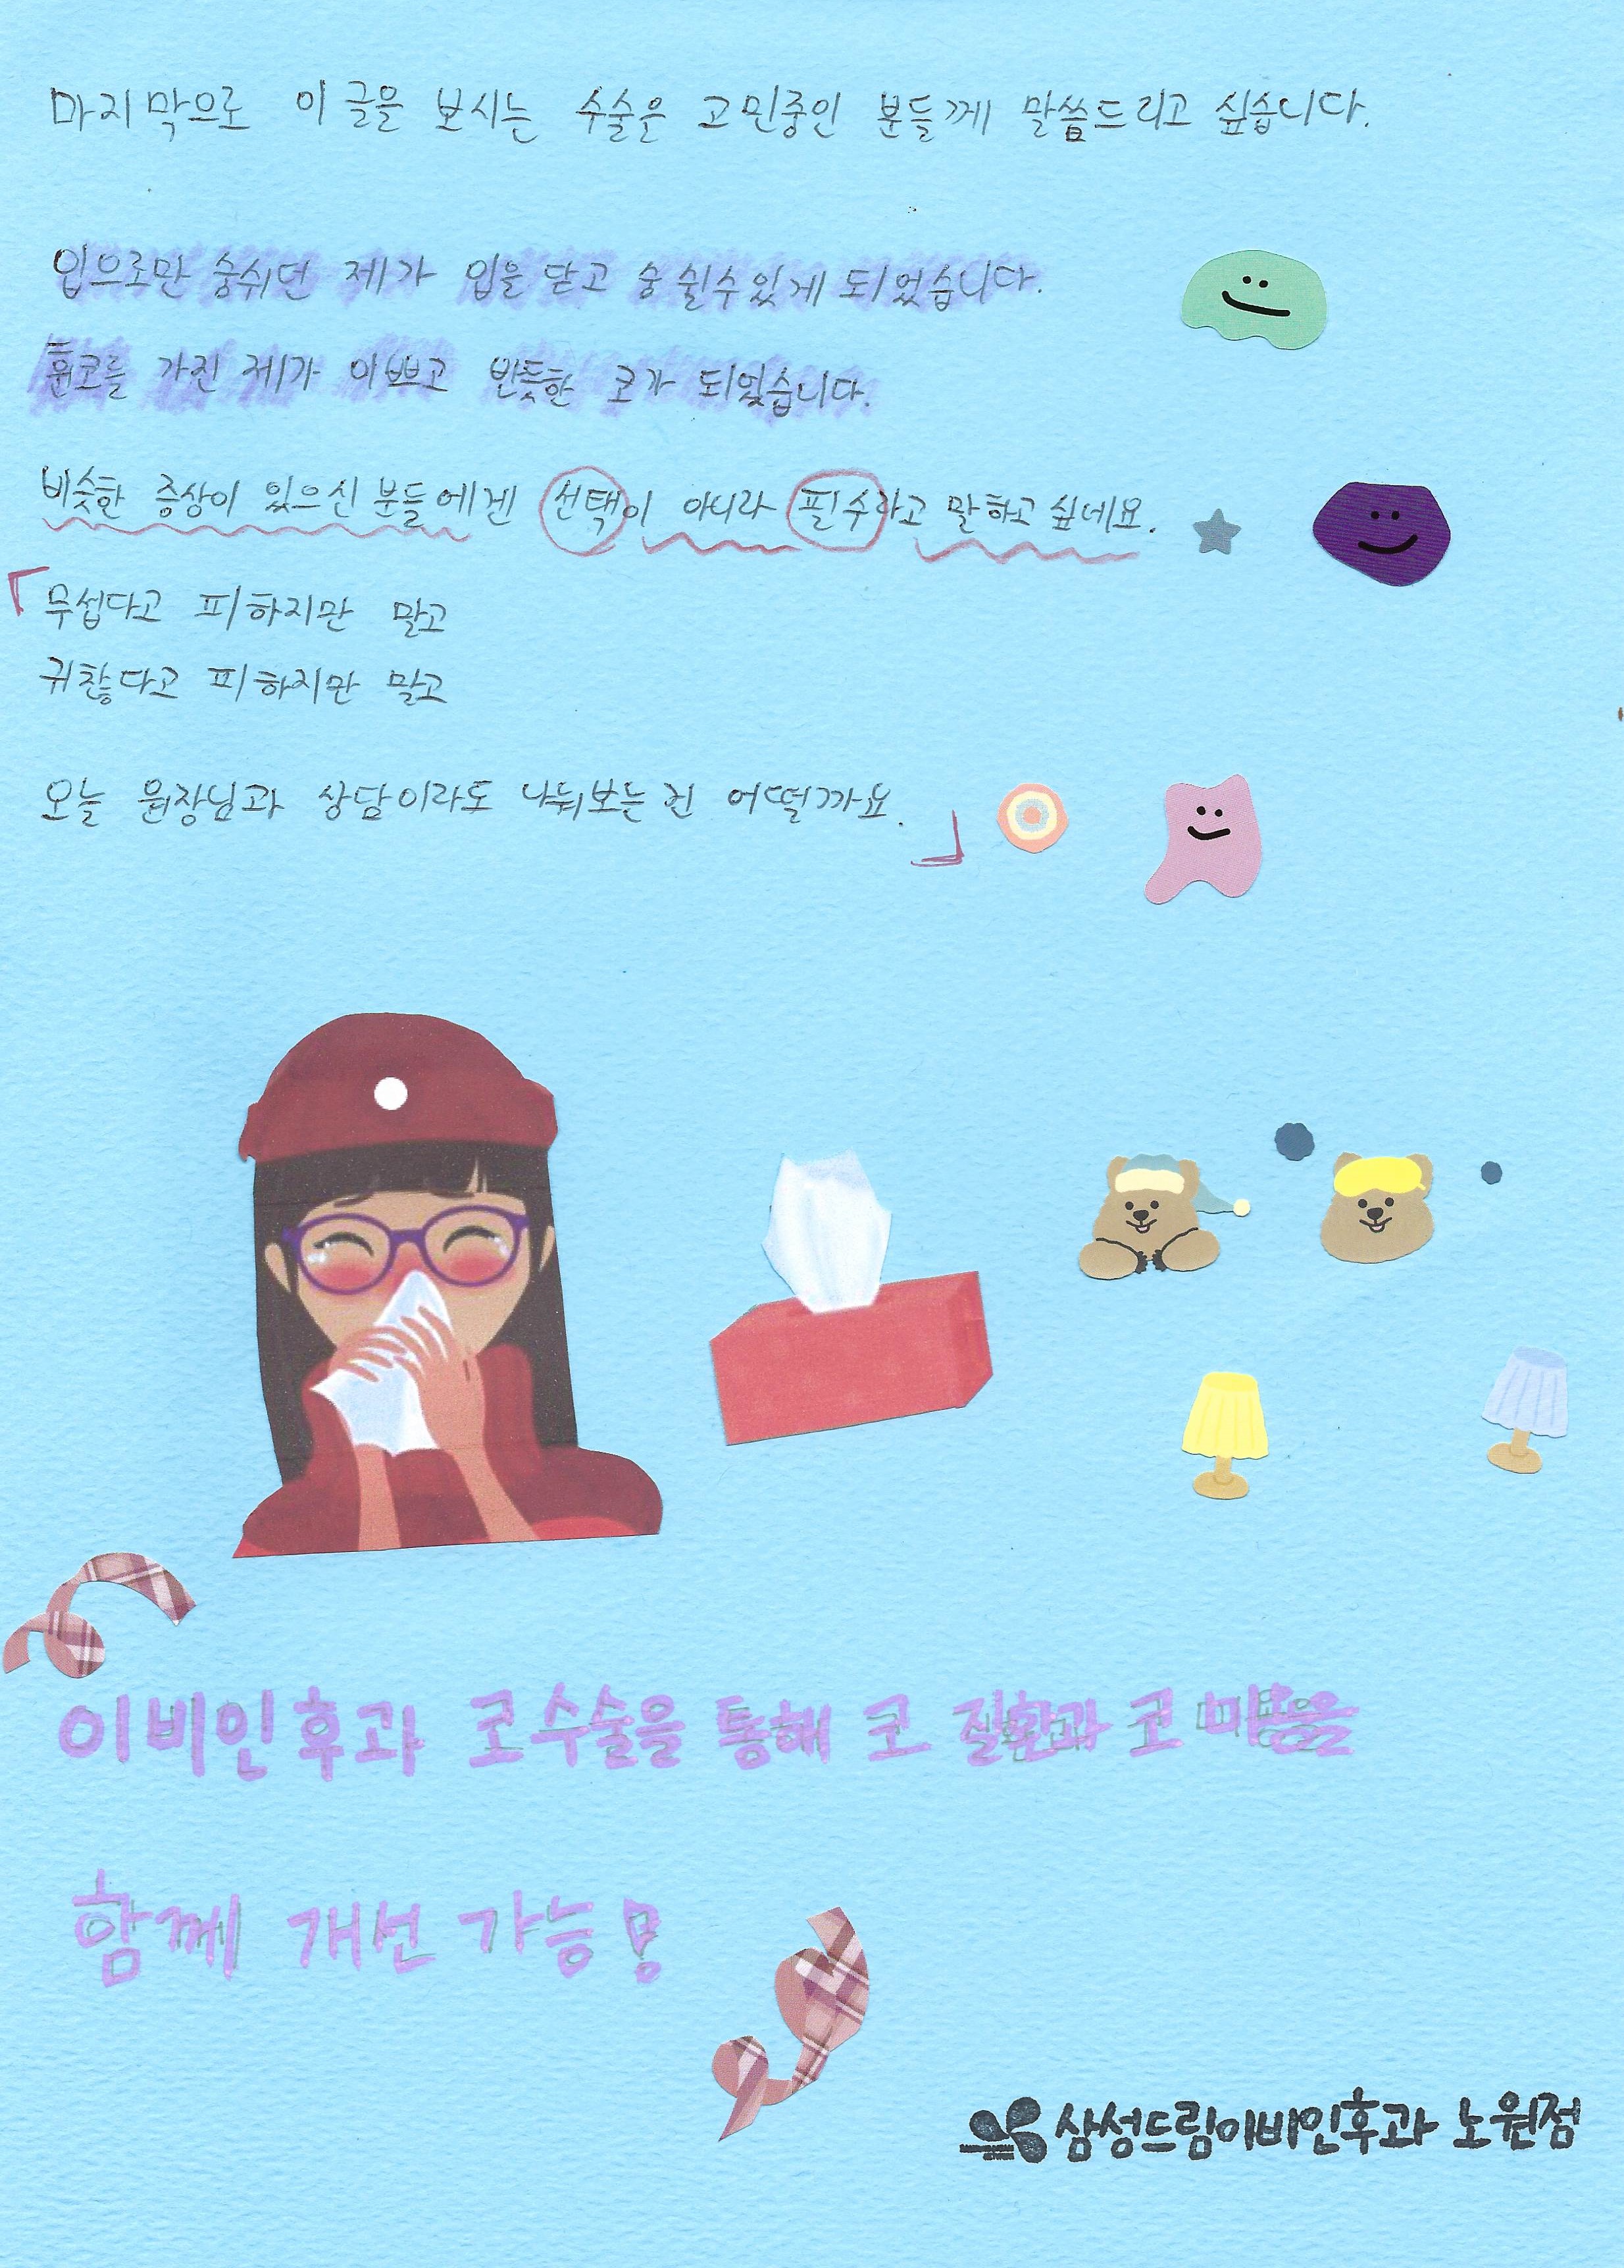 마지막으로 이 글을 보시는 수술은 고민중인 분들께 말씀드리고 싶습니다.
입으로만 숨쉬던 제가 입을 닫고 숨 쉴수있게 되었습니다.
휜코를 가진 제가 이쁘고 반듯한 코가 되었습니다.
비슷한 증상이 있으신 분들에겐 선택이 아니라 필수라고 말하고 싶네요.
「무섭다고 피하지만 말고
귀찮다고 피하지만 말고
오늘 원장님과 상담이라도 나눠보는건 어떨까요.」
이비인후과 코수술을 통해 코 질환과 코 미용을
함께 개선 가능!
삼성드림이비인후과 노원점